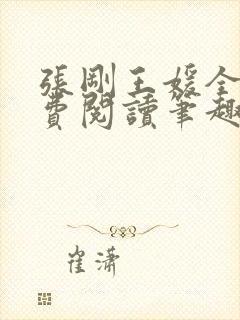 張剛王媛全
費閱讀筆趣
崔瀟